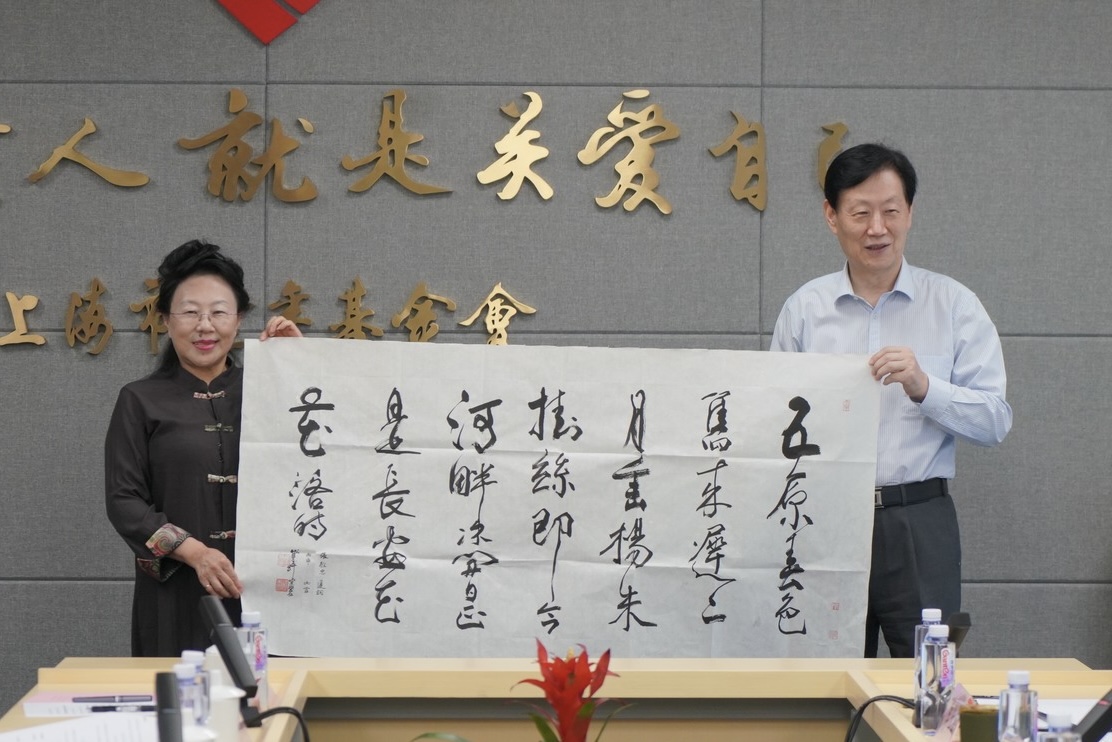 人就是关爱自己
上海
基金會
五原春色
舊來遲二
月垂楊未
掛絲即今
河畔冰開日正
是長安花
落時